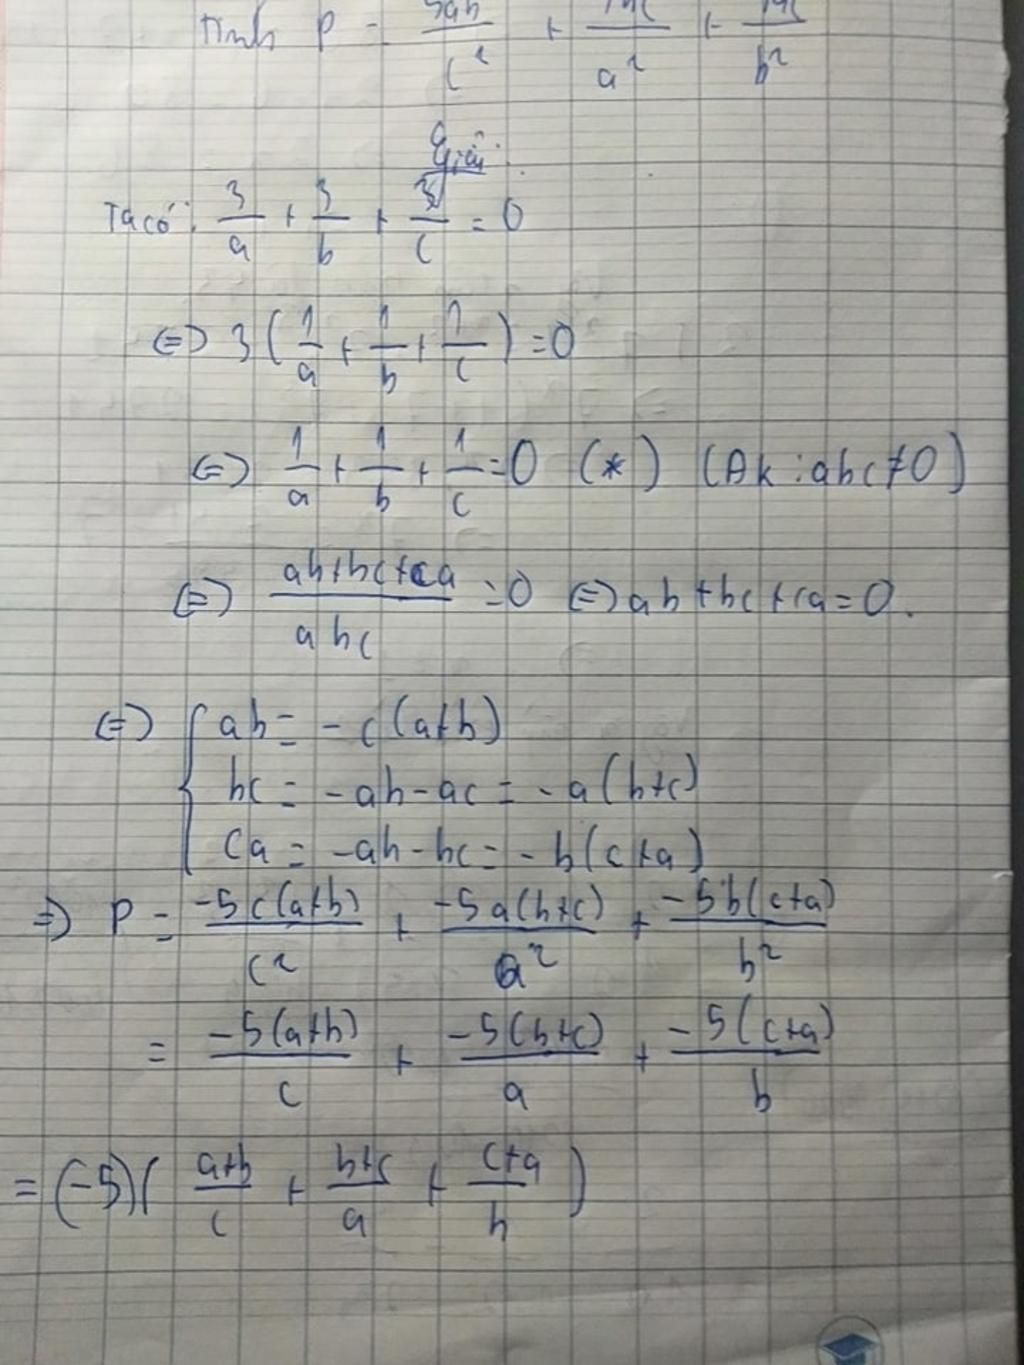 Tính P = 5ab/c² + /a² + /b²
Giải:
Ta có: 3/a + 3/b + 3/c = 0
⇔ 3(1/a + 1/b + 1/c) = 0
⇔ 1/a + 1/b + 1/c = 0 (*) (Đk: abc ≠ 0)
⇔ (ab+bc+ca)/abc = 0 ⇔ ab+bc+ca = 0.
⇔ { ab = -c(a+b)
bc = -ab-ac = -a(b+c)
ca = -ab-bc = -b(c+a)
⇒ P = -5c(a+b)/c² + -5a(b+c)/a² + -5b(c+a)/b²
= -5(a+b)/c + -5(b+c)/a + -5(c+a)/b
= (-5)( (a+b)/c + (b+c)/a + (c+a)/b )